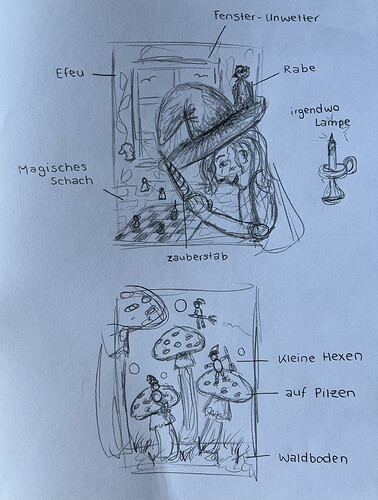 Fenster-Unwetter
Efeu
Rabe
irgendwo
Lampe
Magisches
Schach
zauberstab
Kleine Hexen
auf Pilzen
Waldboden